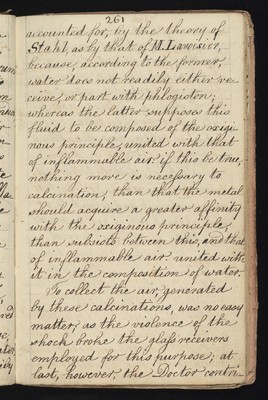 261
accounted for, by the theory of
Stahl, as by that of M. Lavoisier,
because, according to the former,
water does not readily either re
ceive, or part with phlogiston;
whereas the latter supposes this
fluid to be composed of the oxigi-
nous principle, united with that
of inflammable air: if this be true,
nothing more is necessary to
calcination, than that the metal
should acquire a greater affinity
with the oxiginous principle,
than subsists between this, and that
of inflammable air united with
it in the composition of water.
To collect the air, generated
by these calcinations, was no easy
matter, as the violence of the
shock broke the glass receivers
employed for this purpose; at
last, however, the Doctor contri-